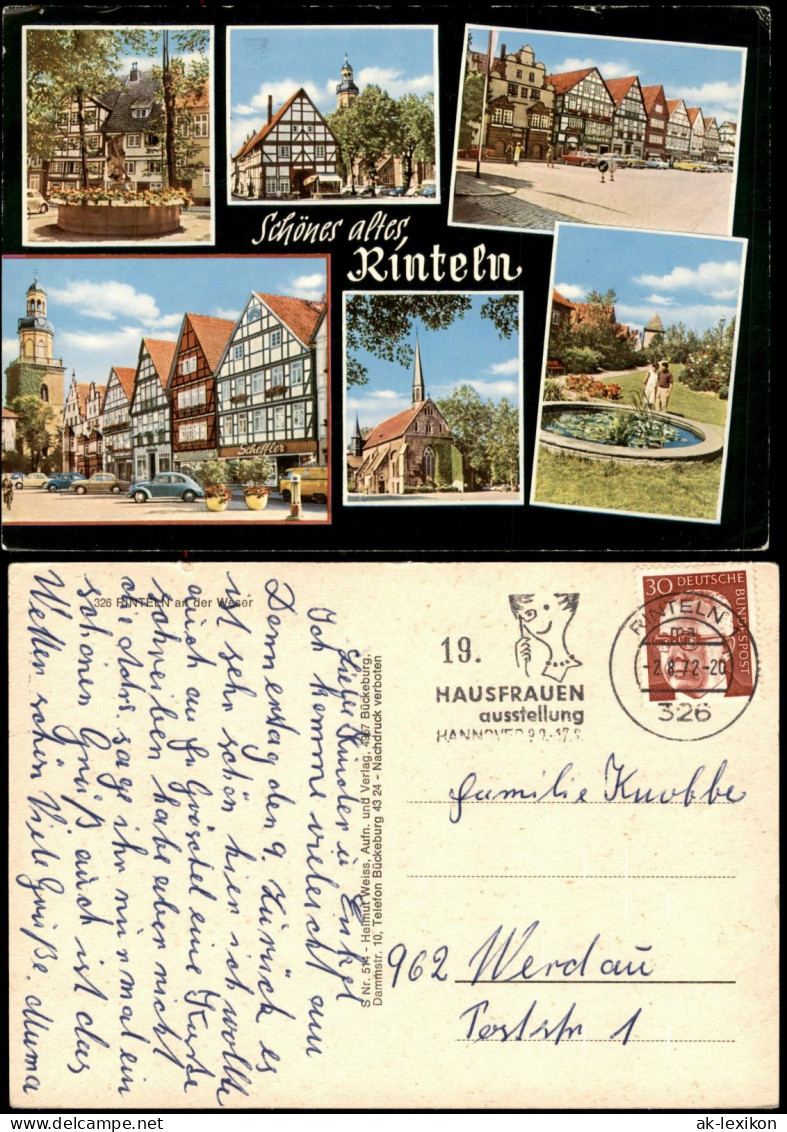 Schönes altes
Rinteln
Scheffler
326 RINTELN an der Weser
Liebe Kinder u Enkel
Ich komme vieleicht am
Donnerstag den 9. Zurück es
ist sehr schön hier ich wollte
auch an Fr Gröschel eine Karte
schreiben habe aber nicht
die Adrs. sage ihr nur mal ein
schönen Gruß auch ist das
Wetter schön Viele Grüße. Muma
S Nr. 514 - Helmut Weiss, Aufn. und Verlag, 4967 Bückeburg,
Dammstr. 10, Telefon Bückeburg 43 24 - Nachdruck verboten
19.
HAUSFRAUEN
ausstellung
HANNOVER 9.9.-17.9.
30 DEUTSCHE
BUNDESPOST
RINTELN
ma
-2.8.72-20
326
Familie Knobbe
962 Werdau
Poststr 1
ak-lexikon